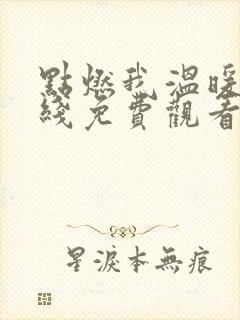 點燃我溫暖
綫免費觀看
星淚本無痕